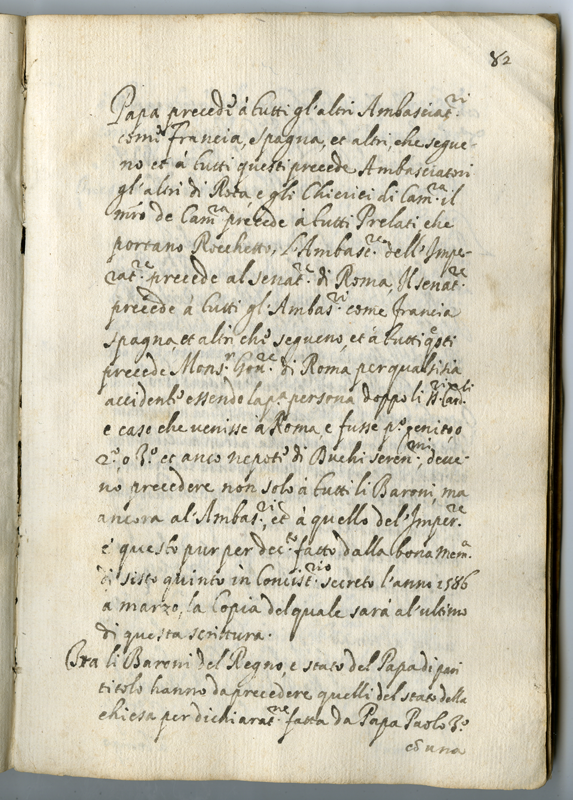 82
Papa precede à tutti gl'altri Ambasciat.ri
come Francia, spagna, et altri, che segue-
no et à tutti questi precede Ambasciatori
gl'altri di Rota e gli Chierici di Cam.ra il
mro de Cam.ra precede à tutti Prelati che
portano Rocchetto, L'Ambasc.re dell'Impe-
rat.re precede al senat.re di Roma, Il senat.re
precede à tutti gl'Ambas.ri come francia
spagna, et altri che segueno, et à tutti q.sti
precede Mons.r Gou.re di Roma per qualsisia
accidente essendo la p.a persona doppo li ss.ri Car.li
e caso che venisse à Roma, e fusse p.o genito, o
2.o, o 3.o et anco nepoti di Duchi seren.mi, deve-
no precedere non solo à tutti li Baroni, ma
ancora al'Ambas.ri, et à quello del'Imper.re
e questo pur per dec.to fatto dalla bona mem.a
di sisto quinto in Concist.rio secreto l'anno 1586
a marzo, la Copia del quale sarà al'ultimo
di questa scrittura.
Tra li Baroni del Regno, e stato del Papa di pari
titolo hanno da precedere quelli del stato della
chiesa per dichiarat.ne fatta da Papa Paolo 3.o
et una